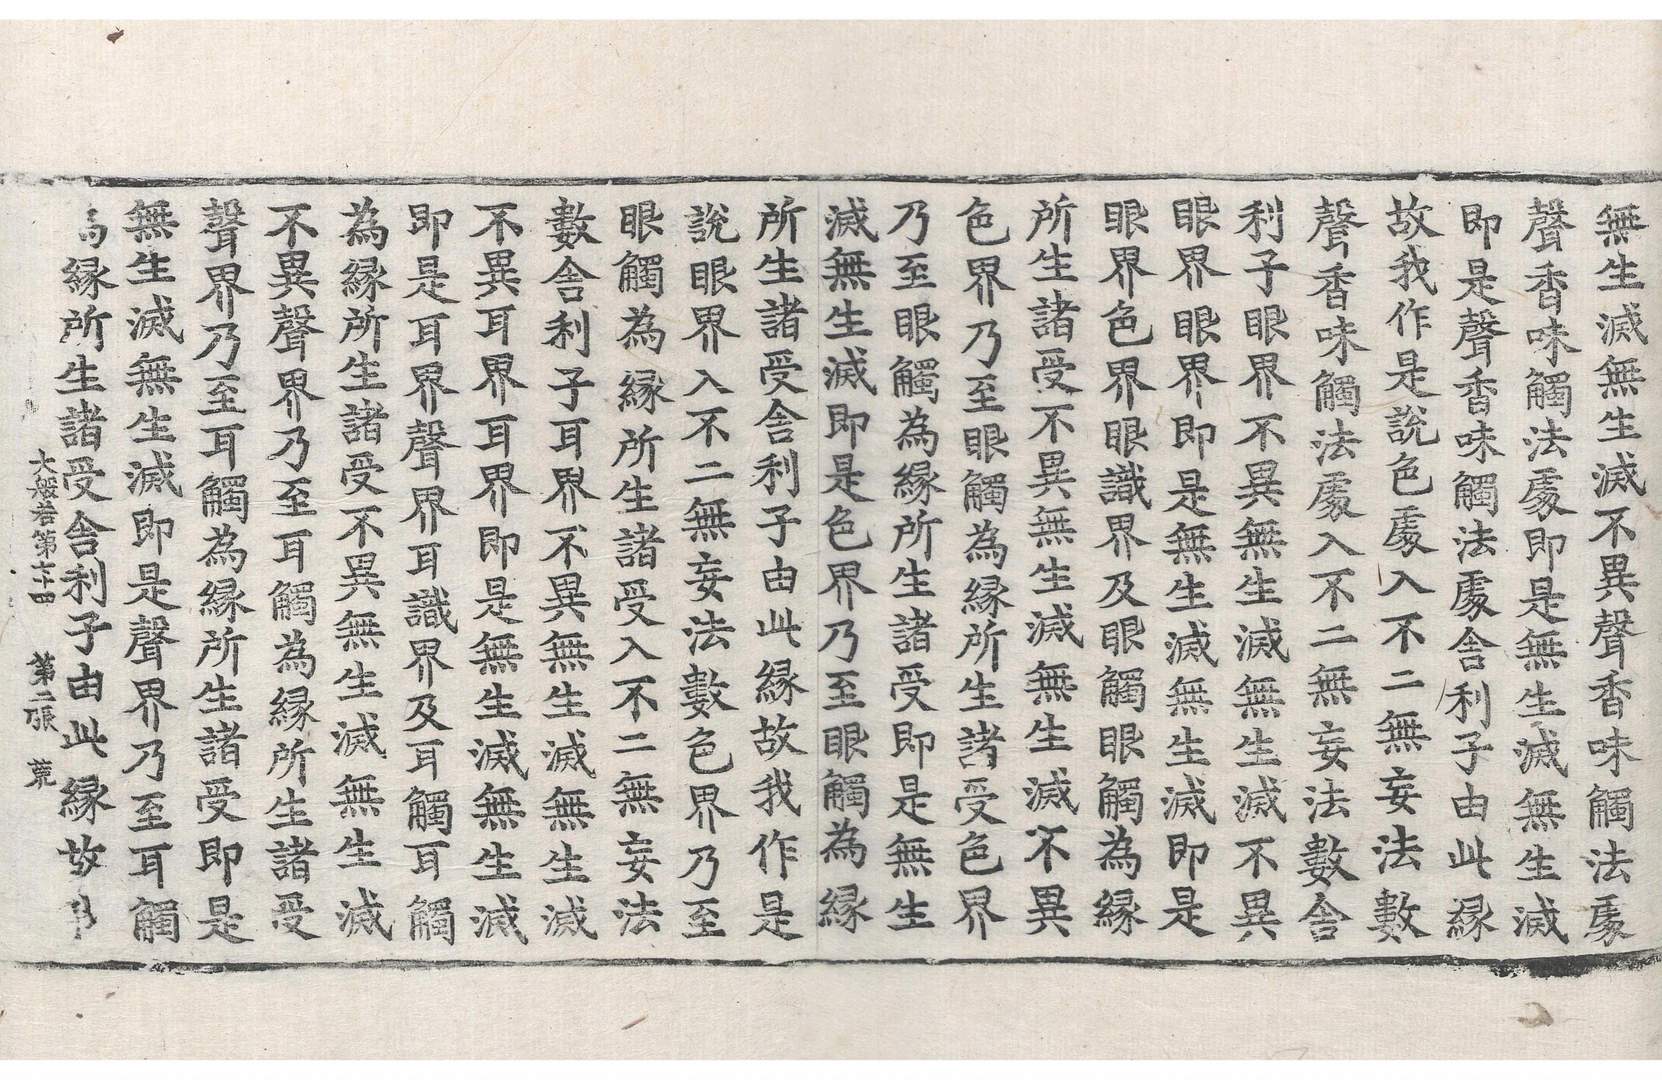 無生滅無生滅不異聲香味觸法處
聲香味觸法處即是無生滅無生滅
即是聲香味觸法處舍利子由此緣
故我作是說色處入不二無妄法數
聲香味觸法處入不二無妄法數舍
利子眼界不異無生滅無生滅不異
眼界眼界即是無生滅無生滅即是
眼界色界眼識界及眼觸眼觸為緣
所生諸受不異無生滅無生滅不異
色界乃至眼觸為緣所生諸受色界
乃至眼觸為緣所生諸受即是無生
滅無生滅即是色界乃至眼觸為緣
所生諸受舍利子由此緣故我作是
說眼界入不二無妄法數色界乃至
眼觸為緣所生諸受入不二無妄法
數舍利子耳界不異無生滅無生滅
不異耳界耳界即是無生滅無生滅
即是耳界聲界耳識界及耳觸耳觸
為緣所生諸受不異無生滅無生滅
不異聲界乃至耳觸為緣所生諸受
聲界乃至耳觸為緣所生諸受即是
無生滅無生滅即是聲界乃至耳觸
為緣所生諸受舍利子由此緣故
大般若第六十四 第二張 荒